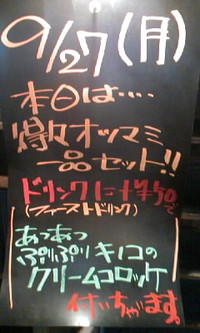 9/27(月)
本日は‥‥
得々オツマミ
一品セット!!
ドリンクに+¥50で
(ファーストドリンク)
あつあつ
ぷりぷりキノコの
クリームコロッケ
付いちゃます。